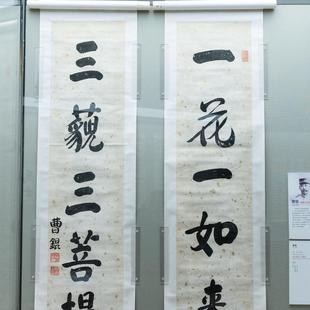 一花一如来
三藐三菩提
曹錕